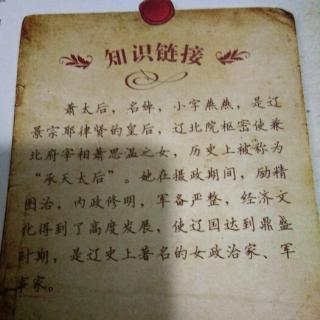 知识链接
萧太后，名绰，小字燕燕，是辽
景宗耶律贤的皇后，辽北院枢密使兼
北府宰相萧思温之女，历史上被称为
“承天太后”。她在摄政期间，励精
图治，内政修明，军备严整，经济文
化得到了高度发展，使辽国达到鼎盛
时期，是辽史上著名的女政治家、军
事家。